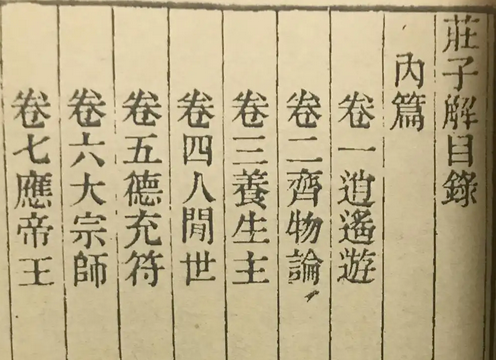 莊子解目錄
內篇
卷一逍遙遊
卷二齊物論
卷三養生主
卷四人閒世
卷五德充符
卷六大宗師
卷七應帝王